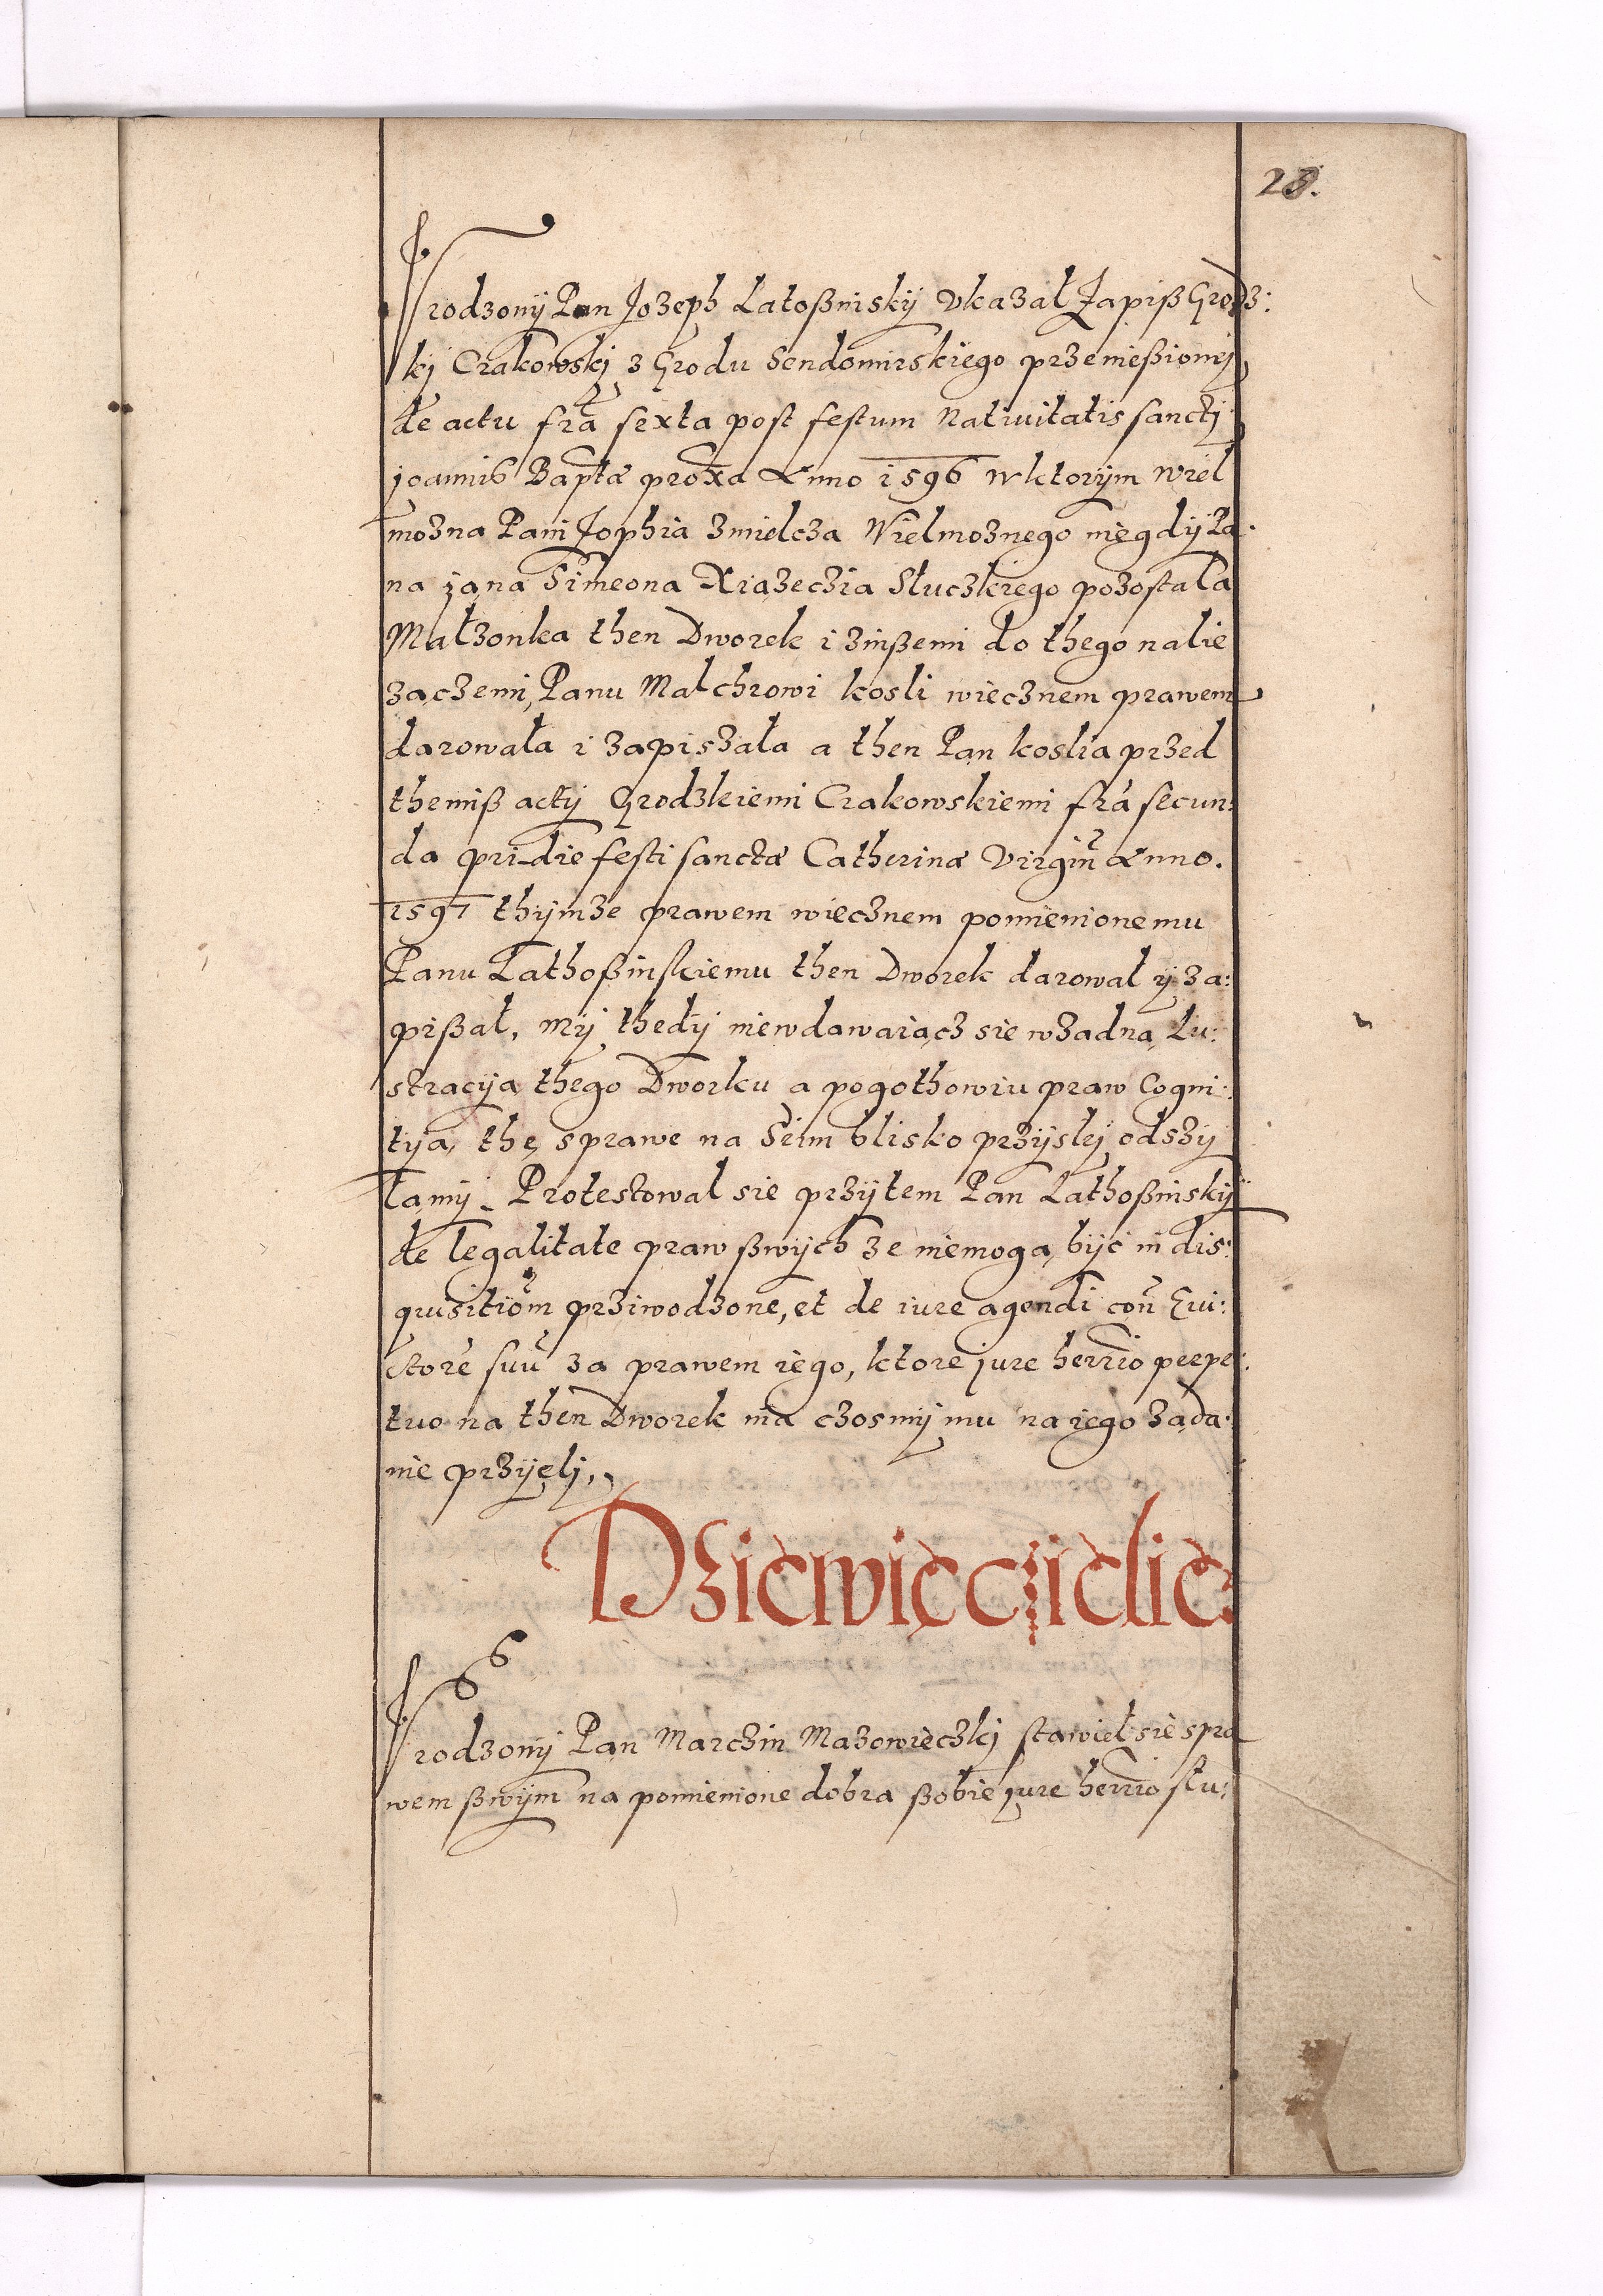 28.
Vrodzonÿ Pan Jozeph Latoßniskÿ Vkazał Zapiß Grodz:
kj Crakowskj z Grodu Sendomirskiego przenießionÿ
de actu fra sexta post festum Natiuitatis sanctj
joannis Baptæ proxa Anno 1596 w ktorÿm Wiel
mozna Pani Zophia zmielcza Wielmoznego niegdÿ Pa:
na jana Simeona Xiązeczia Słuczkiego pozostała
Małzonka then Dworek i zinßemi do thego nalie
zączemi, Panu Malchrowi kosli wiecznem prawem
darowała i zapiszała a then Pan koslia przed
themiß actÿ Grodzkiemi Crakowskiemi fra secun:
da pridie festi sanctæ Catherinæ Virgin Anno.
1597 thÿmze prawem wiecznem pomienionemu
Panu Łathoßinskiemu then Dworek darował ÿ za:
pißał, mÿ thedÿ niewdawaiącz sie wzadną Lu:
stracÿą thego Dworku a pogothowiu praw Cogni:
tÿą, thę sprawe na Seim blisko przÿslÿ odszÿ
łamÿ. Protestował sie przÿtem Pan Łathoßinskÿ
de legalitate praw ßwÿch ze niemogą bÿć in dis:
quisitiom prziwodzone, et de iure agendi con Eui:
ctore suu za prawem iego, ktore jure herrio perpe:
tuo na then Dworek ma czosmÿ mu na iego ząda:
nie przÿęlj,
Dziewięcziclie
Vrodzonÿ Pan Marczin Mazowieczkj stawiel sie spra
wem ßwÿm na pomienione dobra ßobie jure herrio słu: